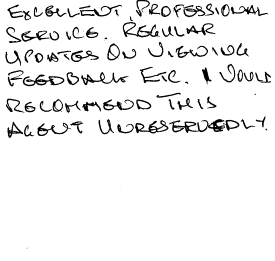 EXCELLENT, PROFESSIONAL
SERVICE. REGULAR
UPDATES ON VIEWING
FEEDBACK ETC. I WOULD
RECOMMEND THIS
AGENT UNRESERVEDLY.